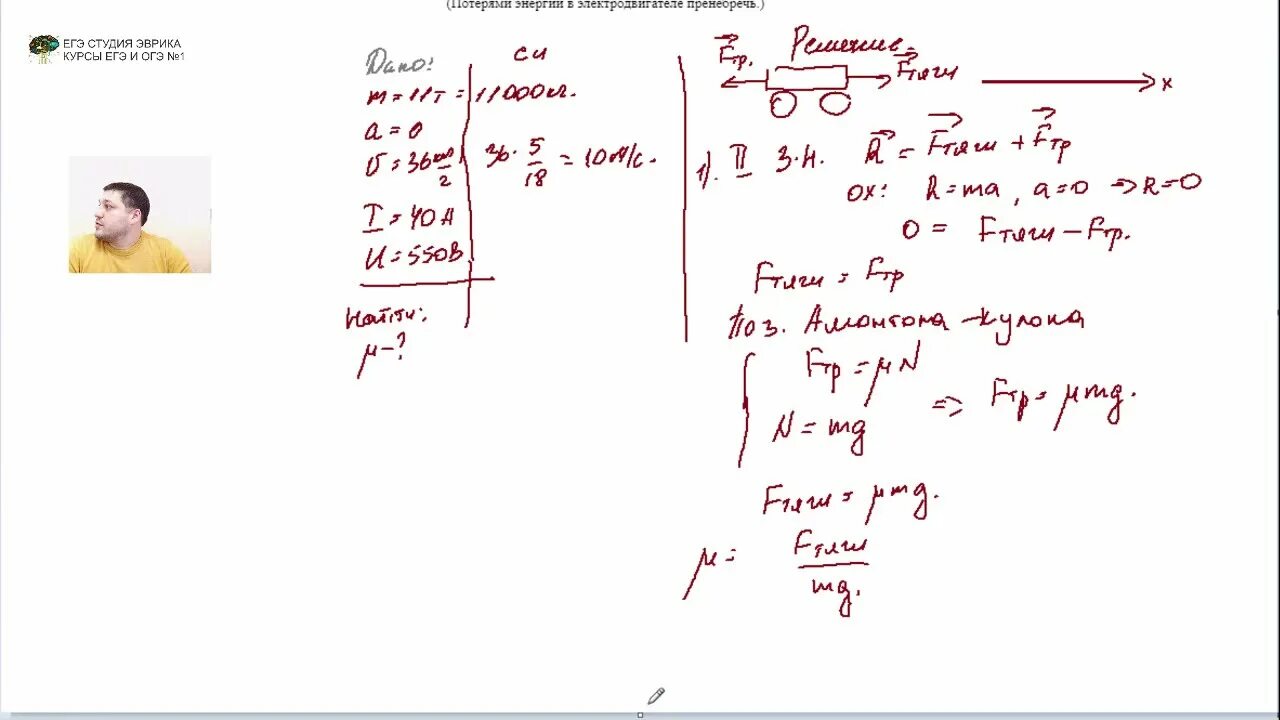 (Потерями энергии в электродвигателе пренебречь.)
ЕГЭ СТУДИЯ ЭВРИКА
КУРСЫ ЕГЭ И ОГЭ №1
Дано:
m = 11т = 11000кг.
a = 0
υ = 36 км/ч
I = 40А
U = 550В
Найти:
μ - ?
си
36 · 5/18 = 10 м/с.
Решение.
Fтр.
Fтяги
x
1). II з.н. R = Fтяги + Fтр
ox: R = ma, a = 0 => R = 0
0 = Fтяги - Fтр.
Fтяги = Fтр
по з. Амонтона - Кулона
Fтр = μN
N = mg
=> Fтр = μmg.
Fтяги = μmg.
μ = Fтяги/mg.